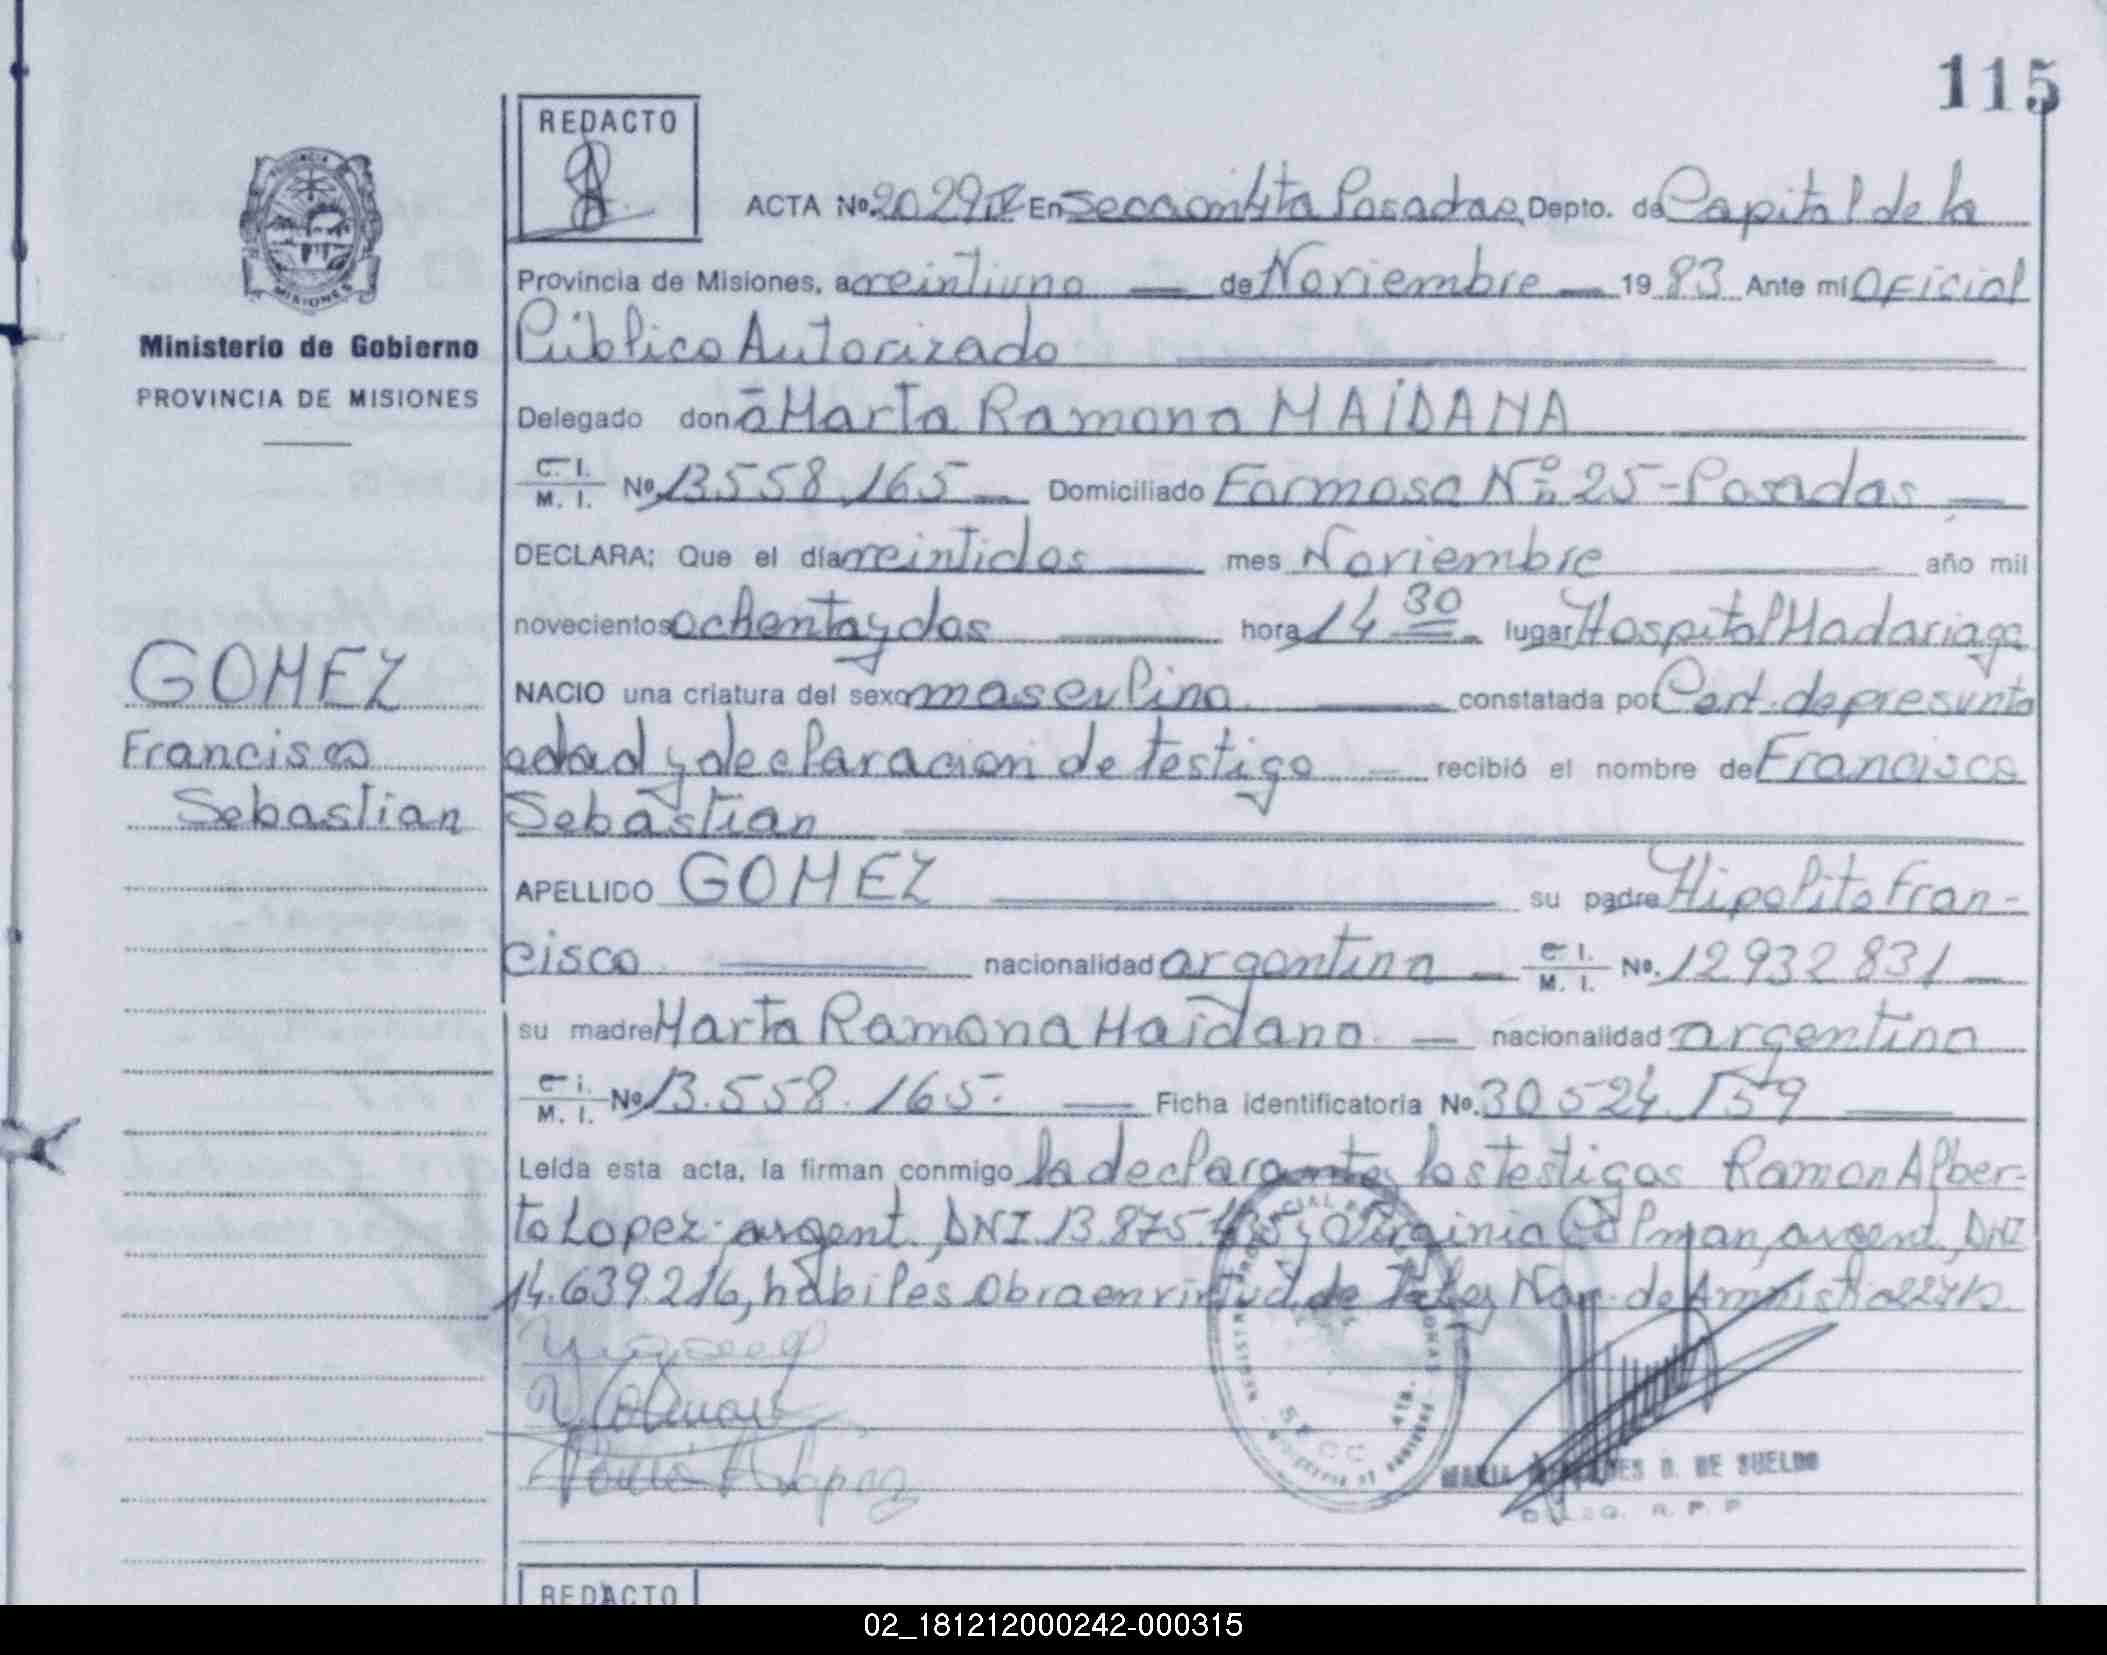 115
REDACTO
ACTA Nº 2029 IV En Sección 4ta Posadas, Depto. de Capital de la
Provincia de Misiones, a veintiuno — de Noviembre — 19 83 Ante mi Oficial
Público Autorizado
Delegado don ā Marta Ramona MAIDANA
C. I. / M. I. Nº 13.558.165 — Domiciliado Formosa Nº 25 - Posadas —
DECLARA: Que el día veintidos — mes Noviembre — año mil
novecientos ochenta y dos — hora 14 30 lugar Hospital Madariaga
NACIO una criatura del sexo masculino — constatada por Cert. de presunta
edad y declaración de testigo — recibió el nombre de Francisco
Sebastian
APELLIDO GOMEZ — su padre Hipolito Fran-
cisco — nacionalidad argentina — C. I. / M. I. Nº. 12932831 —
su madre Marta Ramona Maidana — nacionalidad argentina
C. I. / M. I. Nº 13.558.165. — Ficha identificatoria Nº. 30.524.159 —
Leída esta acta, la firman conmigo la declarante, los testigos Ramon Alber-
to Lopez, argent., DNI 13.875. Virginia Colman, argent, DNI
14.639.216, hábiles Obra en virtud de la Ley Nac. de Amnistia
V Colman
Lopez
SECC. 4TA.
MARIA D. DE SUELDO
R. P. P
REDACTO
PROVINCIA
MISIONES
Ministerio de Gobierno
PROVINCIA DE MISIONES
GOMEZ
Francisco
Sebastian
02_181212000242-000315